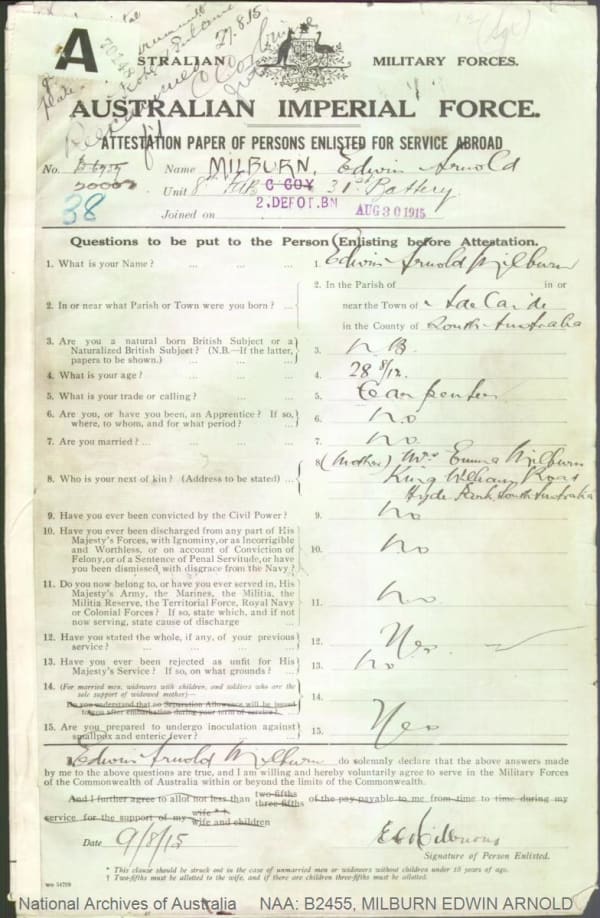 A
27.8.15
STRALIAN MILITARY FORCES.
AUSTRALIAN IMPERIAL FORCE.
ATTESTATION PAPER OF PERSONS ENLISTED FOR SERVICE ABROAD
No. Name MILBURN, Edwin Arnold
38
Unit 8th FAB C COY 31st Battery
2. DEPOT. BN AUG 30 1915
Joined on
Questions to be put to the Person Enlisting before Attestation.
1. What is your Name? ... ... ... 1. Edwin Arnold Milburn
2. In or near what Parish or Town were you born? ... 2. In the Parish of in or
near the Town of Adelaide
in the County of South Australia
3. Are you a natural born British Subject or a 3. N.B.
Naturalized British Subject? (N.B.—If the latter,
papers to be shown.) ... ...
4. What is your age? ... ... ... 4. 28 8/12
5. What is your trade or calling? ... ... 5. Carpenter
6. Are you, or have you been, an Apprentice? If so, 6. No
where, to whom, and for what period? ...
7. Are you married? ... ... ... ... 7. No
8. Who is your next of kin? (Address to be stated) ... 8 (Mother) Mrs Emma Milburn
King William Road
Hyde Park, South Australia
9. Have you ever been convicted by the Civil Power? 9. No
10. Have you ever been discharged from any part of His 10. No
Majesty's Forces, with Ignominy, or as Incorrigible
and Worthless, or on account of Conviction of
Felony, or of a Sentence of Penal Servitude, or have
you been dismissed with disgrace from the Navy?
11. Do you now belong to, or have you ever served in, His 11. No
Majesty's Army, the Marines, the Militia, the
Militia Reserve, the Territorial Force, Royal Navy
or Colonial Forces? If so, state which, and if not
now serving, state cause of discharge ...
12. Have you stated the whole, if any, of your previous 12. Yes
service? ... ... ... ...
13. Have you ever been rejected as unfit for His 13. No
Majesty's Service? If so, on what grounds? ...
14. (For married men, widowers with children, and soldiers who are the 14.
sole support of widowed mother)—
Do you understand that no Separation Allowance will be issued
to you after embarkation during your term of service?
15. Are you prepared to undergo inoculation against 15. Yes
smallpox and enteric fever?
I, Edwin Arnold Milburn do solemnly declare that the above answers made
by me to the above questions are true, and I am willing and hereby voluntarily agree to serve in the Military Forces
of the Commonwealth of Australia within or beyond the limits of the Commonwealth.
And I further agree to allot not less than two-fifths three-fifths of the pay payable to me from time to time during my
service for the support of my wife* † wife and children
Date 9/8/15
Signature of Person Enlisted.
* This clause should be struck out in the case of unmarried men or widowers without children under 18 years of age.
† Two-fifths must be allotted to the wife, and if there are children three-fifths must be allotted.
National Archives of Australia NAA: B2455, MILBURN EDWIN ARNOLD